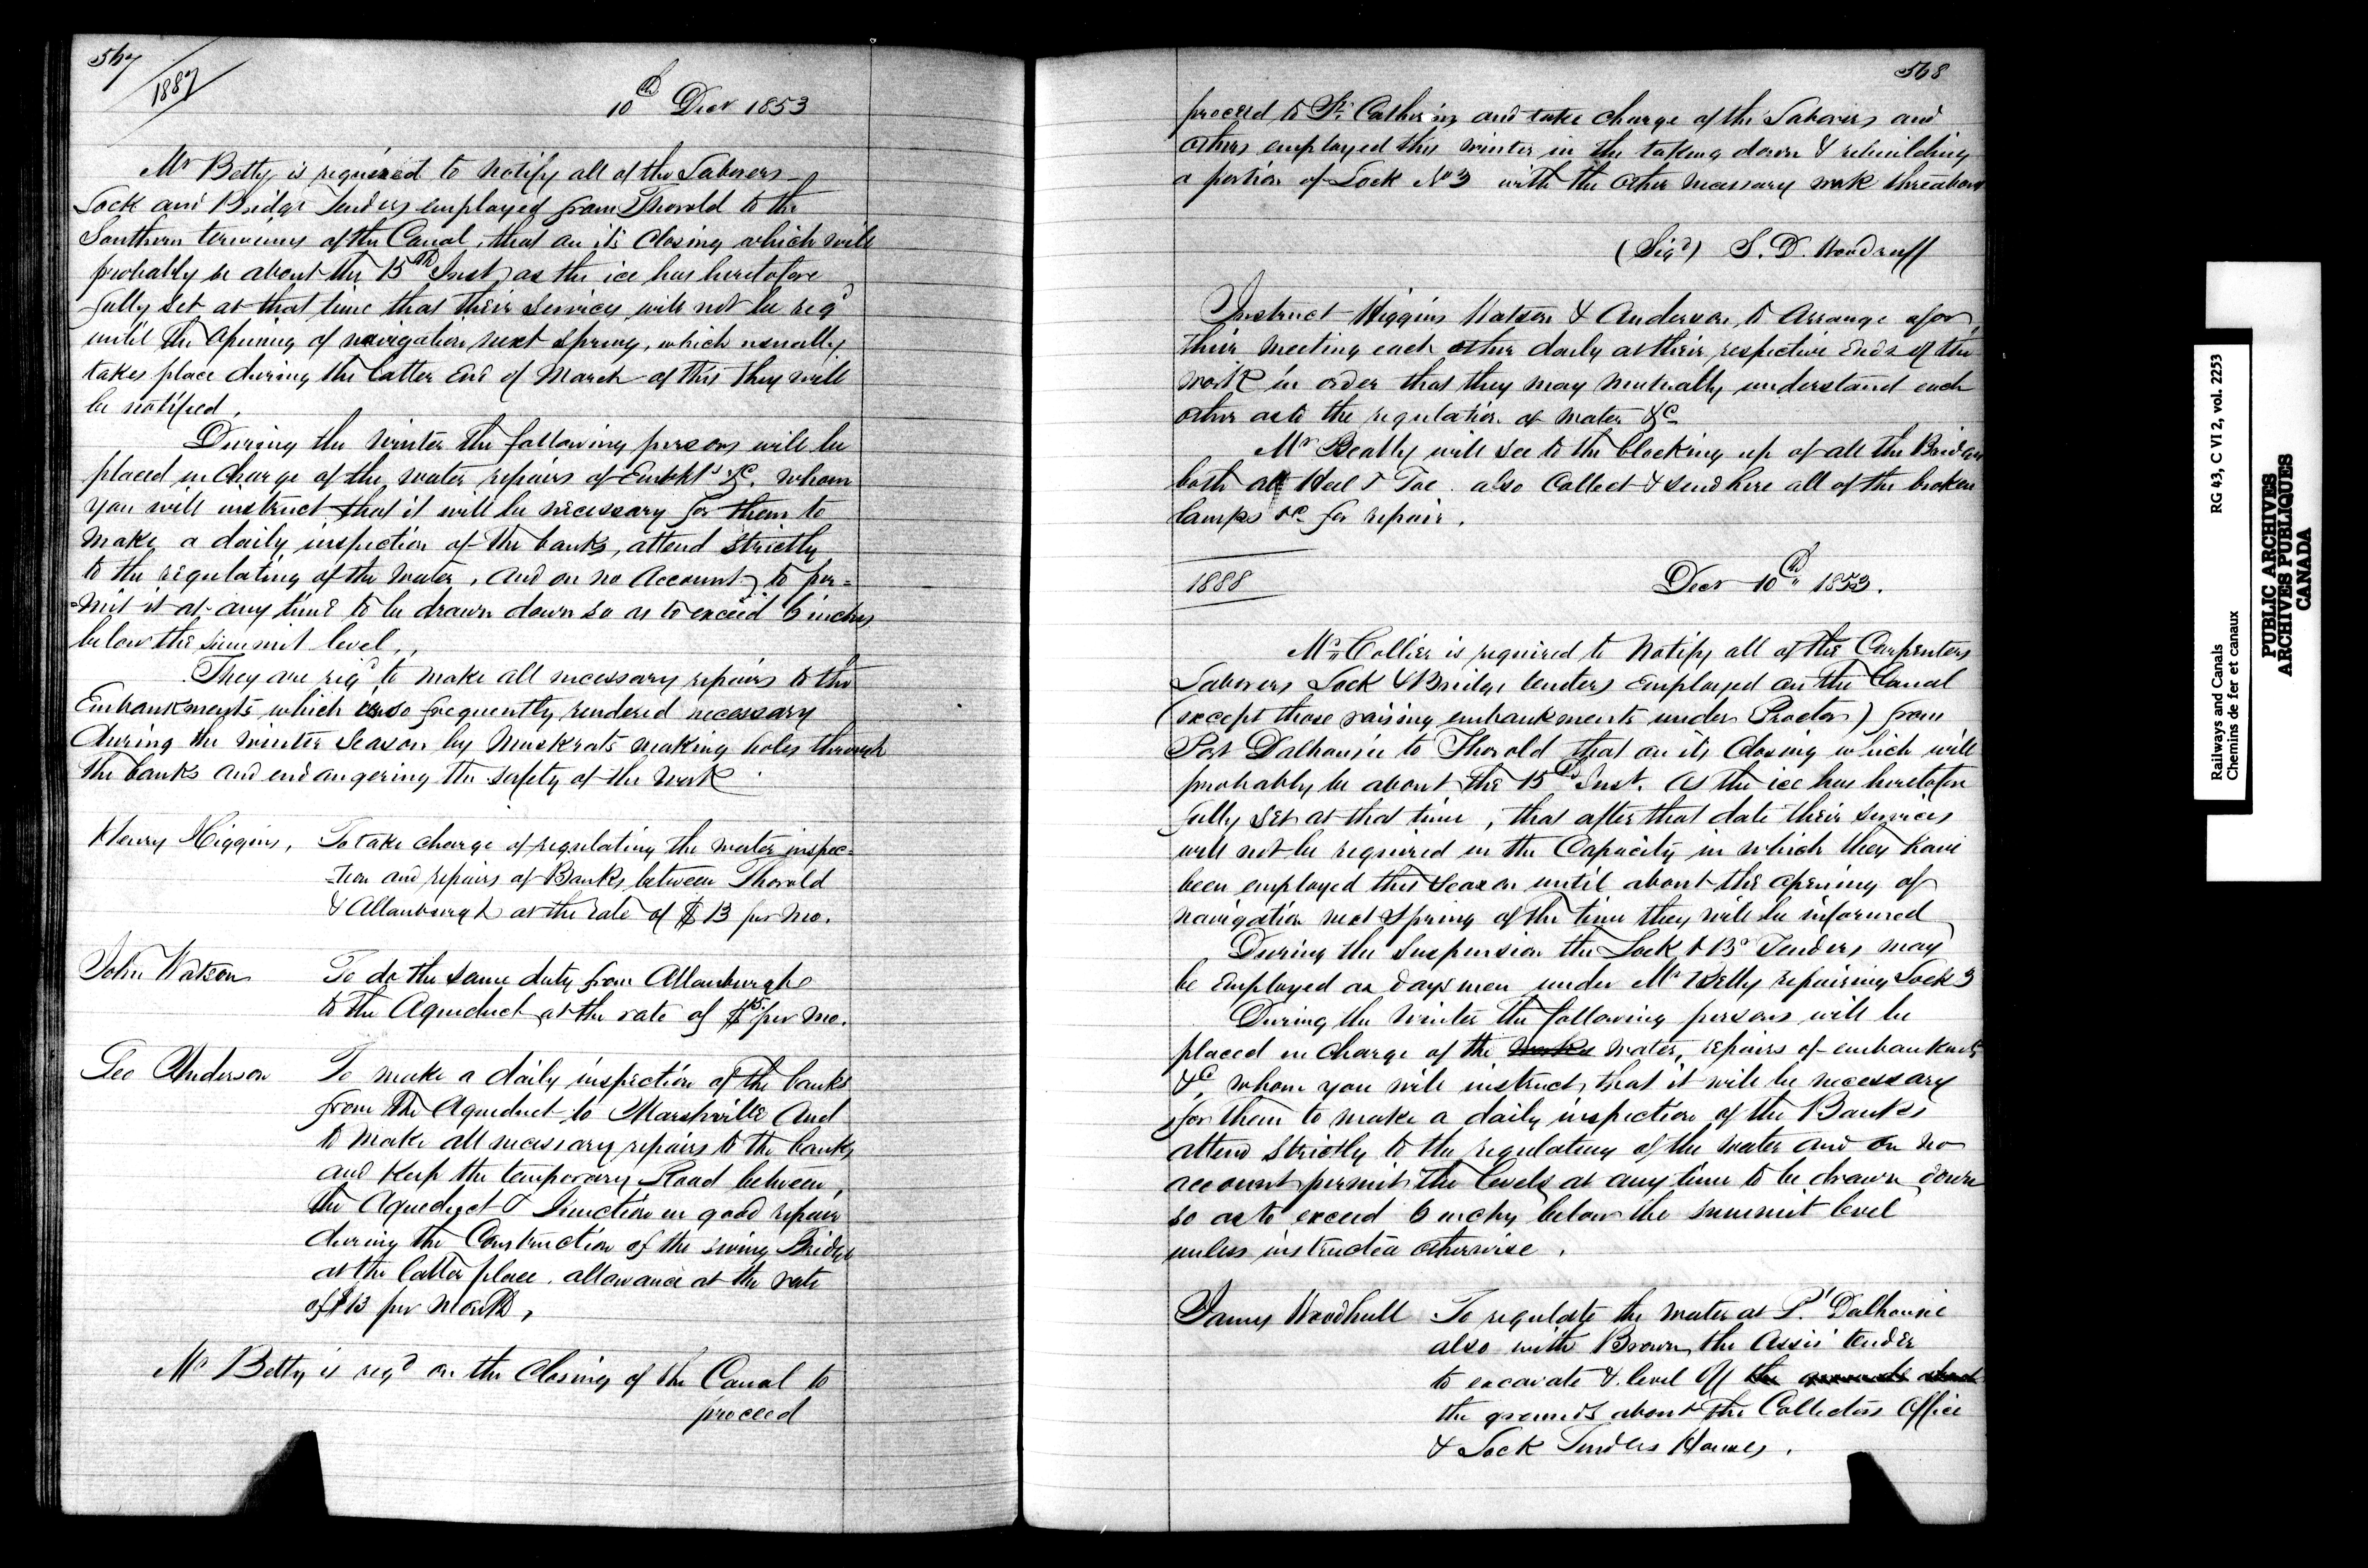 567
1887
10th Decr 1853
Mr Betty is required to notify all of the Laborers
Lock and Bridge Tenders employed from Thorold to the
Southern terminus of the Canal, that on its closing which will
probably be about the 15th Inst as the ice has heretofore
fully set at that time that their services will not be reqd
until the opening of navigation next spring, which usually
takes place during the latter end of March of this they will
be notified.
During the Winter the following persons will be
placed in charge of the water repairs of Embkts &c. whom
you will instruct that it will be necessary for them to
make a daily inspection of the banks, attend strictly
to the regulating of the water, and on no Account to per=
=mit it at any time to be drawn down so as to exceed 6 inches
below the summit level.
They are reqd to make all necessary repairs to the
Embankments which is so frequently rendered necessary
during the winter season by Muskrats making holes through
the banks and endangering the safety of the work.
Henry Higgins, To take charge of regulating the water inspec=
=tion and repairs of Banks between Thorold
& Allanburgh at the rate of $13 per mo.
John Watson To do the same duty from Allanburgh
to the Aqueduct at the rate of $15 per mo.
Geo Anderson To make a daily inspection of the banks
from the Aqueduct to Marshville And
to make all necessary repairs to the banks
and keep the temporary Road between
the Aqueduct & Junction in good repair
during the Construction of the swing Bridge
at the latter place. allowance at the rate
of $13 per month,
Mr Betty is reqd on the closing of the Canal to
proceed
568
proceed to St Catherines and take charge of the Laborers and
others employed this winter in the taking down & rebuilding
a portion of Lock No 3 with the other necessary work thereabout
(Sigd) S. D. Woodruff
Instruct Higgins Watson & Anderson, to Arrange for
their meeting each other daily at their respective Ends of the
work in order that they may mutually understand each
other as to the regulation of water &c
Mr Beatty will see to the blocking up of all the Bridges
both at Heel & Toe. also Collect & send here all of the broken
lamps &c for repair.
1888
Decr 10th 1853.
Mr Collier is required to Notify all of the Carpenters
Laborers Lock & Bridge tenders Employed on the Canal
(except those raising embankments under Proctor) from
Port Dalhousie to Thorold that on its closing which will
probably be about the 15th Inst. As the ice has heretofore
fully set at that time, that after that date their services
will not be required in the Capacity in which they have
been employed this season until about the opening of
navigation next Spring of the time they will be informed
During the suspension the Lock & Be Tenders may
be employed as days men under Mr Betty repairing Lock 3
During the Winter the following persons will be
placed in charge of the works water, repairs of embankmts
&c, whom you will instruct, that it will be necessary
for them to make a daily inspection of the Banks
attend strictly to the regulating of the water and on no
account permit the levels at any time to be drawn down
so as to exceed 6 inches below the summit level
unless instructed otherwise.
James Woodhull To regulate the water at Pt Dalhousie
also with Brown, the Assis' tender
to excavate & level off the grounds about
the grounds about the Collectors Office
& Lock Tenders Houses.
Railways and Canals
Chemins de fer et canaux
RG 43, C VI 2, vol. 2253
PUBLIC ARCHIVES
ARCHIVES PUBLIQUES
CANADA